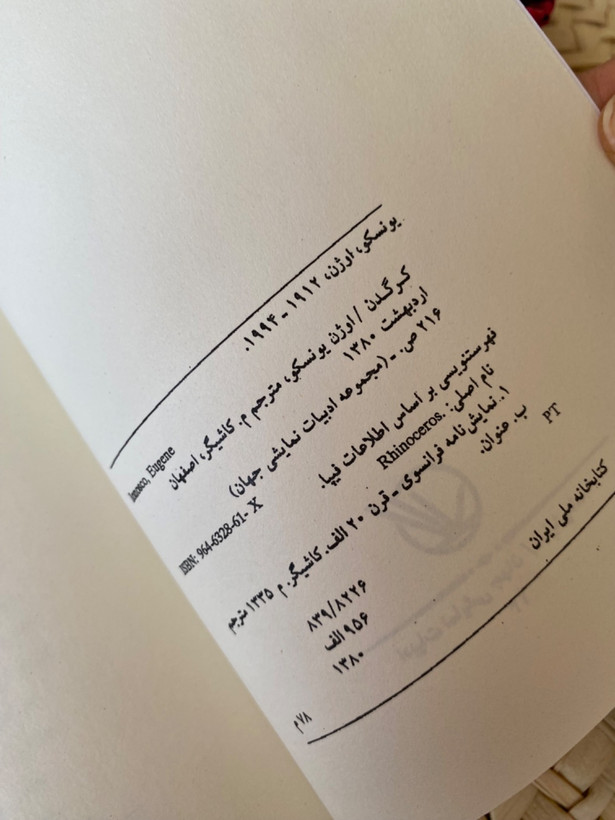 یونسکو، اوژن، ۱۹۱۲ - ۱۹۹۴.
Ionesco, Eugene
کرگدن / اوژن یونسکو، مترجم م. کاشیگر، اصفهان
اردیبهشت ۱۳۸۰
۲۱۶ ص. - (مجموعه ادبیات نمایشی جهان)
ISBN: 964-6328-61-X
فهرستنویسی بر اساس اطلاعات فیپا.
نام اصلی: Rhinoceros.
۱. نمایش نامه فرانسوی - قرن ۲۰ الف. کاشیگر. م ۱۳۳۵ مترجم
ب. عنوان.
PT
۸۳۹/۸۲۲۶
۹۵۶ الف
۱۳۸۰
کتابخانه ملی ایران
۷۸م